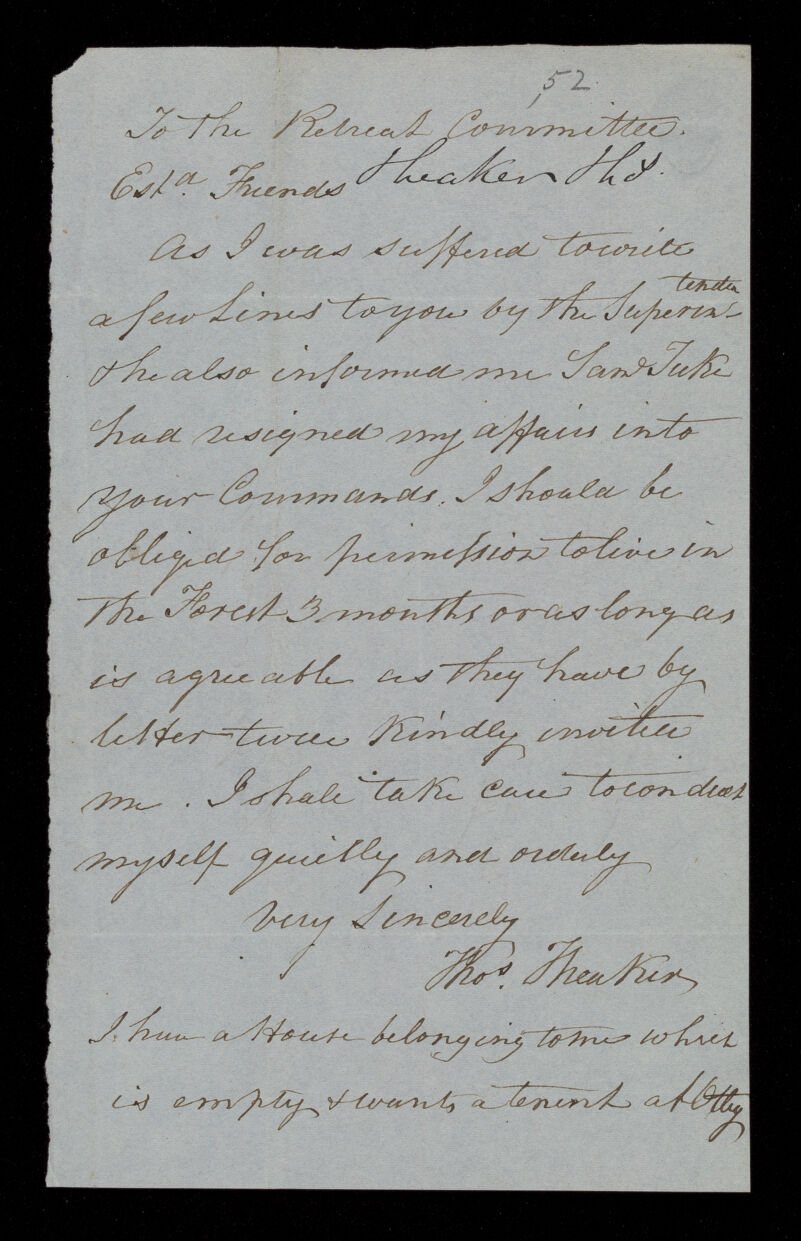 52
To the Retreat Committee.
Estd. Friends Theaker Thos.
As I was suffered to write
a few Lines to you by the Superin-
tenden
& he also informed me Saml Tuke
had resigned my affairs into
your Commands. I should be
obliged for permission to live in
the Forest 3 months or as long as
is agreeable as they have by
letter twice Kindly invited
me. I shall take care to conduct
myself quietly and orderly
Very Sincerely
Thos. Theaker
I have a House belonging to me which
is empty & wants a tenent at Otley